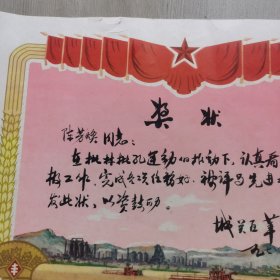 奖状
陈芳焕 同志:
在批林批孔运动的推动下,认真看
校工作,完成各项任务好,被评为先进
发此状,以资鼓励。
城关区革